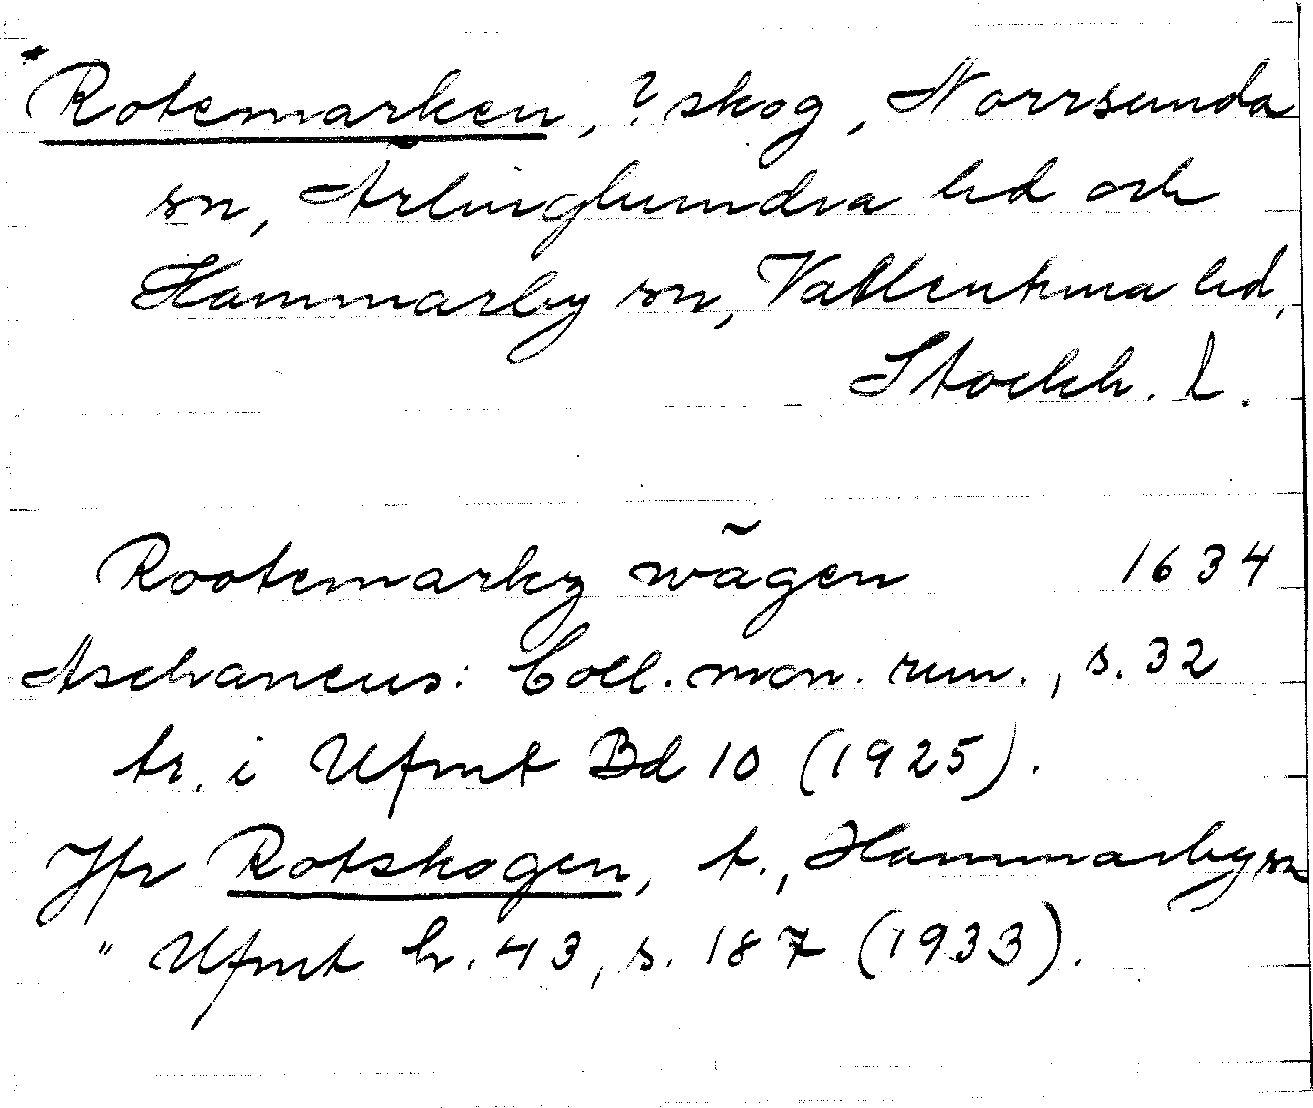 *Rotemarken, ? skog, Norrsunda
sn, Ärlinghundra hd och
Hammarby sn, Vallentuna hd,
Stockh. l.
Rootemarkz wägen 1634
Aschaneus: Coll. mon. run., s. 32
tr. i Ufmt Bd 10 (1925).
Jfr Rotskogen, t., Hammarby sn
" Ufmt h. 43, s. 187 (1933).